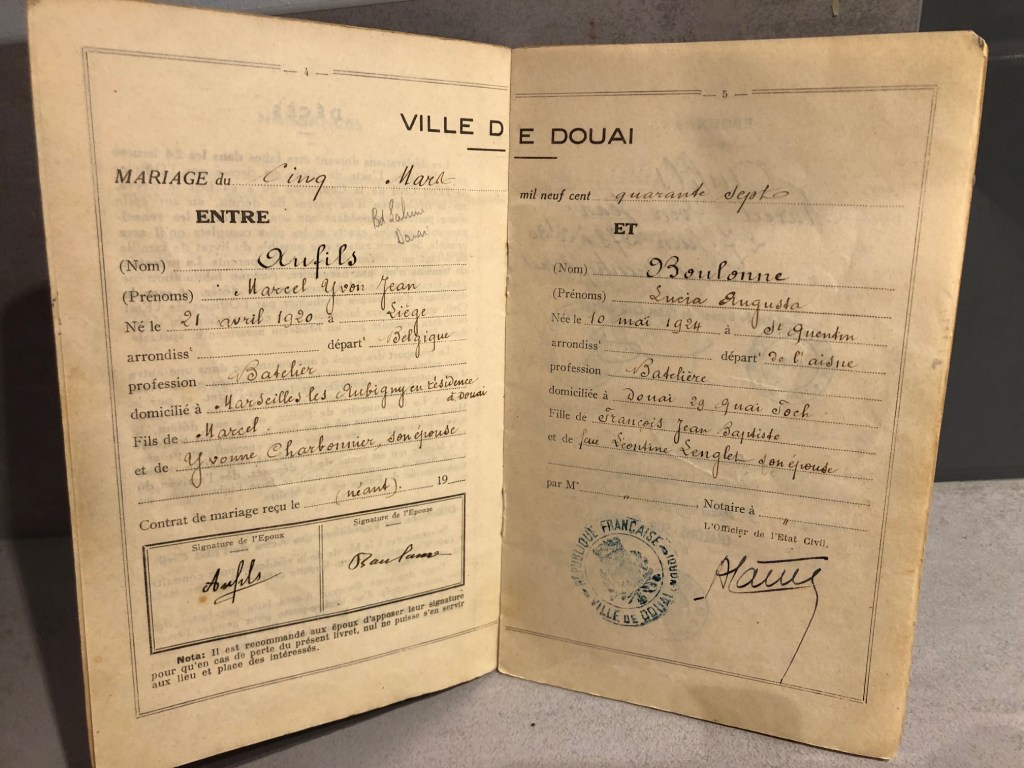 — 4 —
VILLE D
MARIAGE du Cinq Mars
ENTRE
Douai
(Nom) Aufils
(Prénoms) Marcel Yvon Jean
Né le 21 avril 1920 à Liège
arrondisst départt Belgique
profession Batelier
domicilié à Marseilles les Aubigny en résidence
à Douai
Fils de Marcel
et de Yvonne Charbonnier, son épouse
Contrat de mariage reçu le (néant). 19
Signature de l'Epoux
Signature de l'Epouse
Aufils
Boulonne
Nota: Il est recommandé aux époux d'apposer leur signature
pour qu'en cas de perte du présent livret, nul ne puisse s'en servir
aux lieu et place des intéressés.
— 5 —
E DOUAI
mil neuf cent quarante sept
ET
(Nom) Boulonne
(Prénoms) Lucia Augusta
Née le 10 mai 1924 à St Quentin
arrondisst départt de l'aisne
profession Batelière
domiciliée à Douai 29 Quai Foch
Fille de François Jean Baptiste
et de feue Léontine Lenglet son épouse
par Me " , Notaire à "
L'Officier de l'Etat Civil,
RÉPUBLIQUE FRANÇAISE
(NORD)
VILLE DE DOUAI